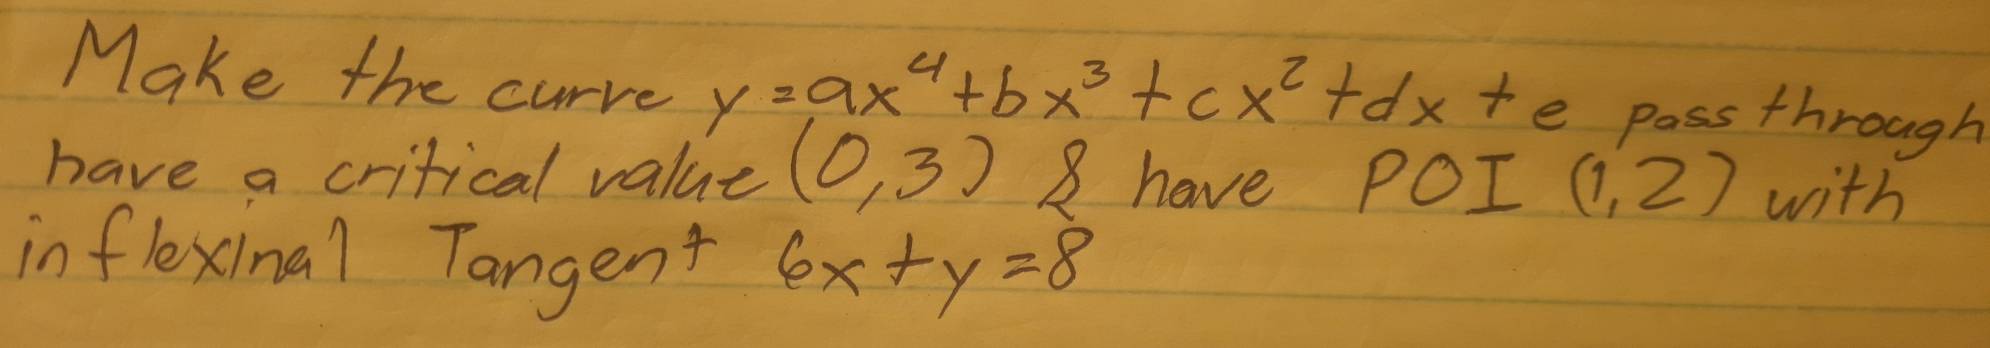 Make the curve y=ax⁴+bx³+cx²+dx+e pass through
have a critical value (0,3) & have POI (1,2) with
inflexinal Tangent 6x+y=8